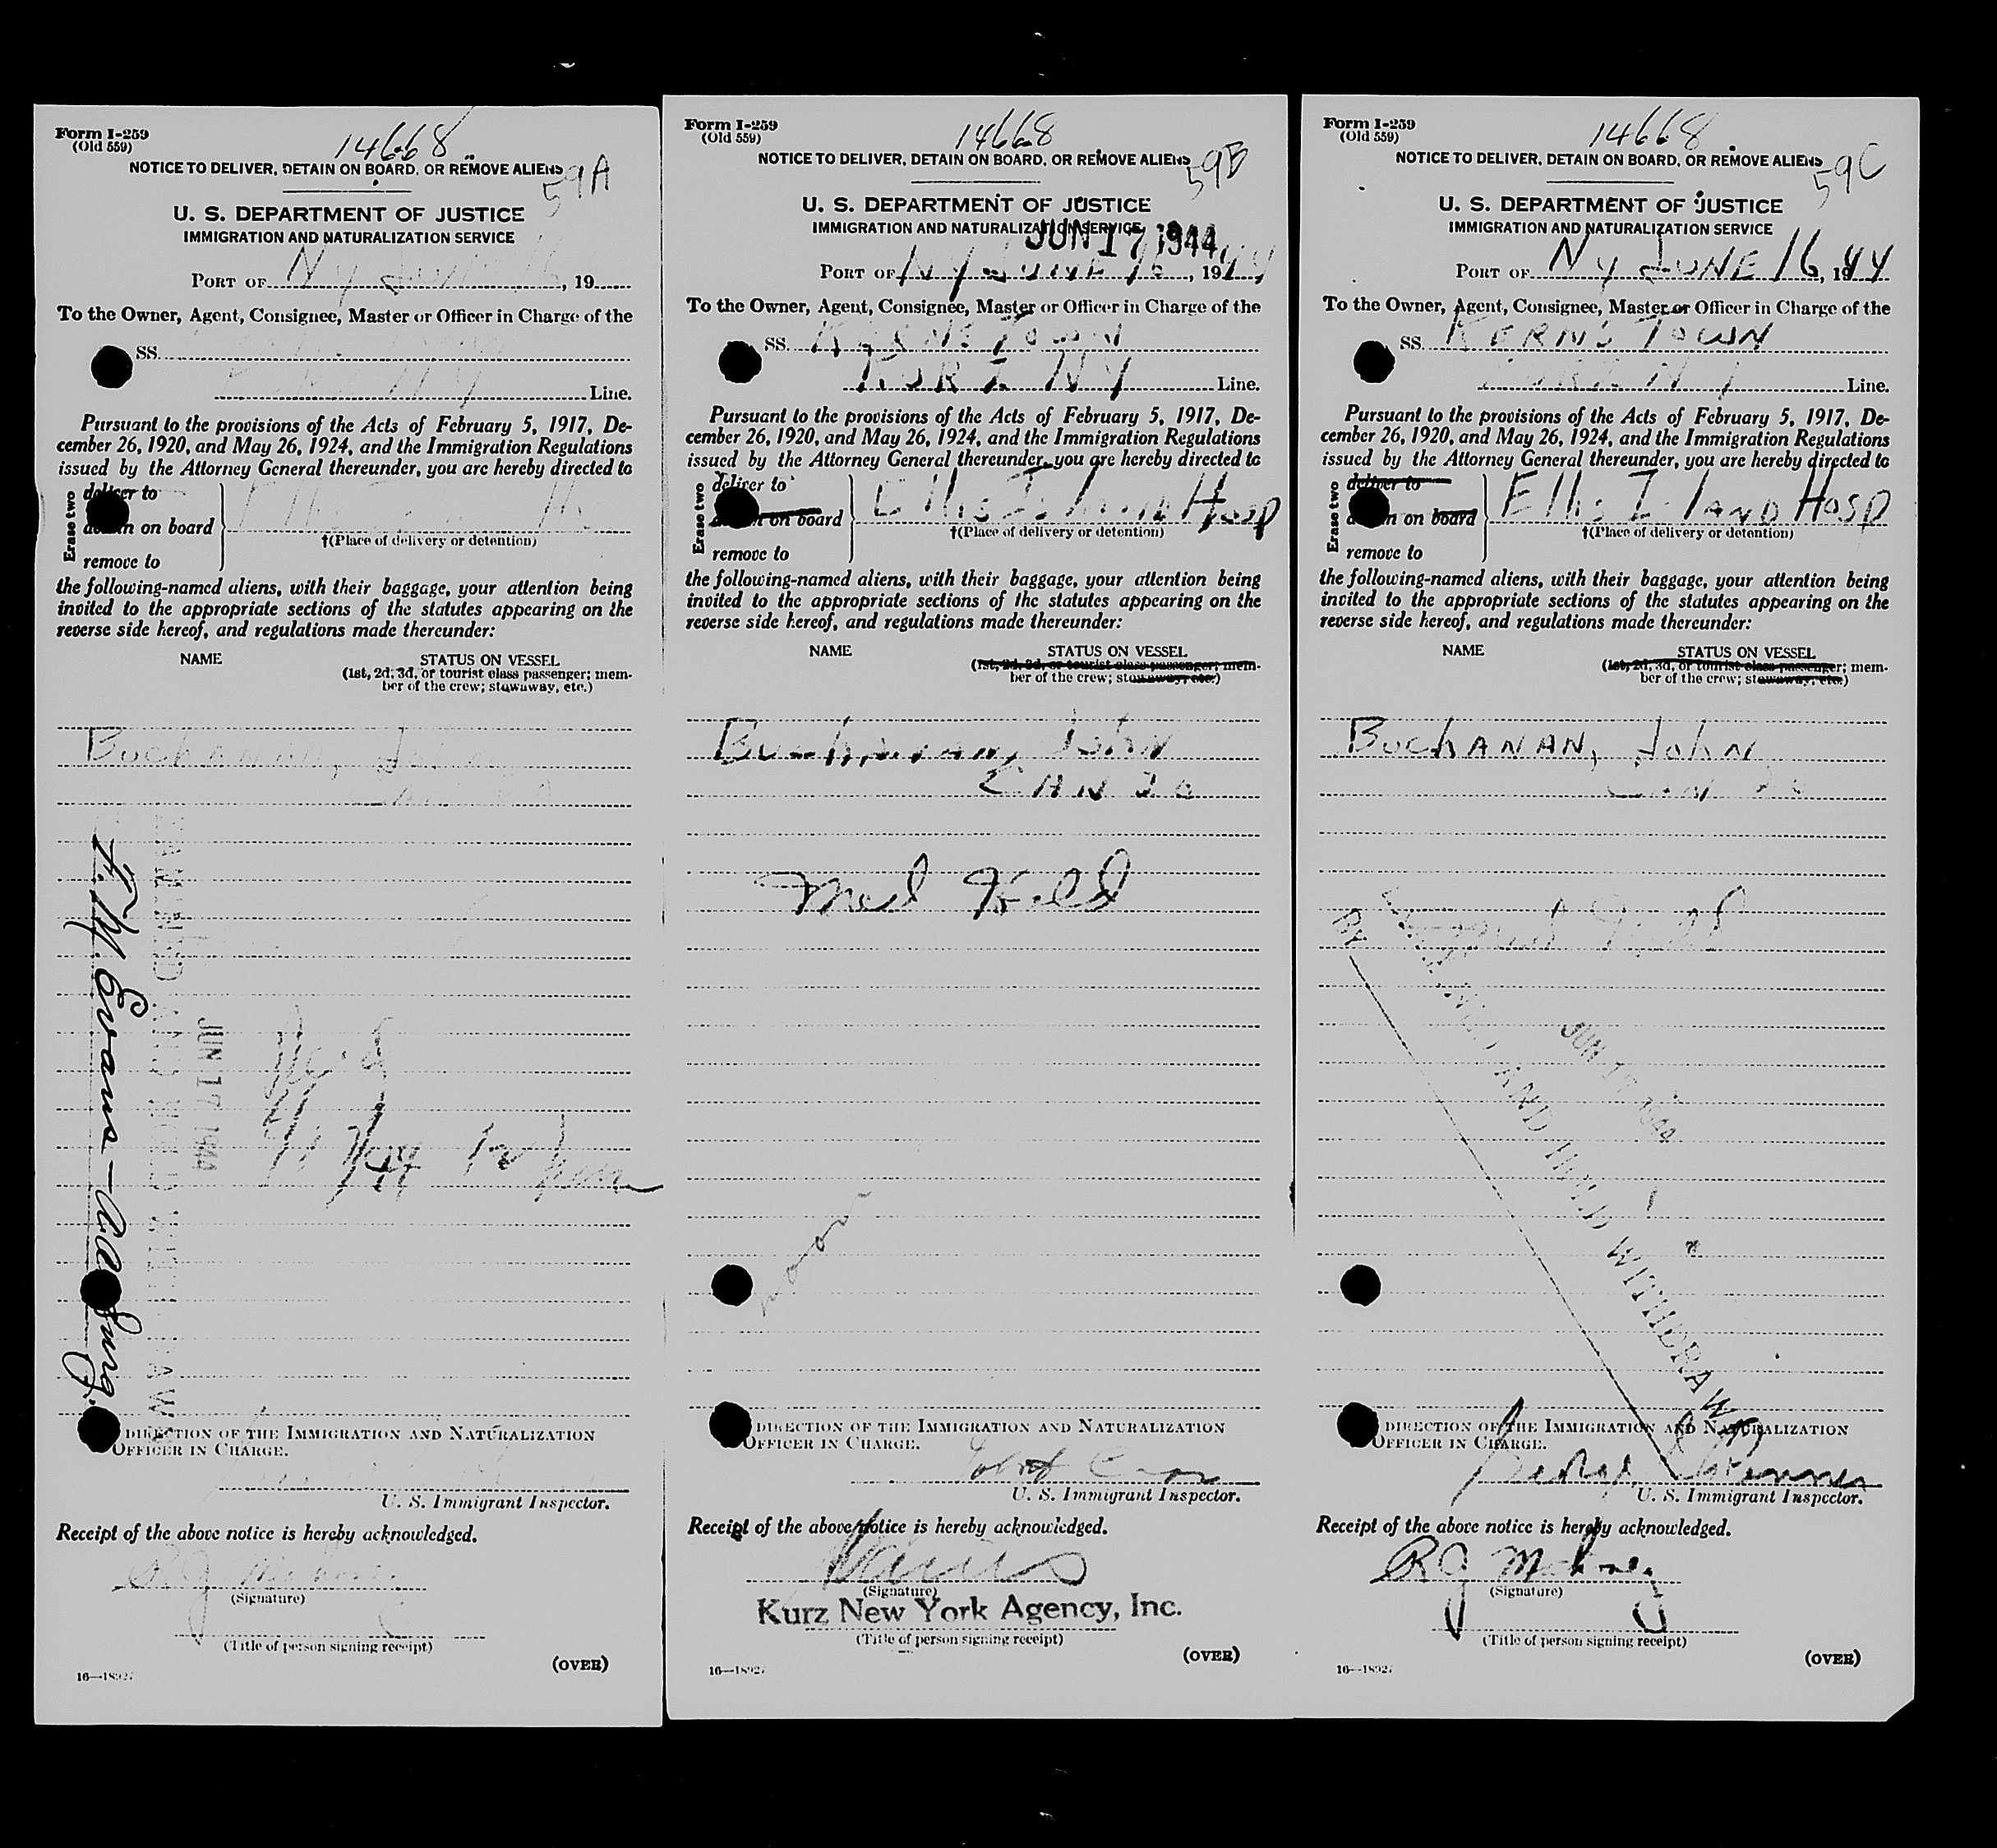 Form I-259
(Old 559)
14668
NOTICE TO DELIVER, DETAIN ON BOARD, OR REMOVE ALIENS
59A
U. S. DEPARTMENT OF JUSTICE
IMMIGRATION AND NATURALIZATION SERVICE
PORT OF NY June 16, 19
To the Owner, Agent, Consignee, Master or Officer in Charge of the
SS.
NY Line.
Pursuant to the provisions of the Acts of February 5, 1917, De-
cember 26, 1920, and May 26, 1924, and the Immigration Regulations
issued by the Attorney General thereunder, you are hereby directed to
Erase two
deliver to
detain on board
†(Place of delivery or detention)
remove to
the following-named aliens, with their baggage, your attention being
invited to the appropriate sections of the statutes appearing on the
reverse side hereof, and regulations made thereunder:
NAME STATUS ON VESSEL
(1st, 2d, 3d, or tourist class passenger; mem-
ber of the crew; stowaway, etc.)
BUCHANAN, John
EXAMINED AND HELD WITHDRAWN
JUN 17 1944
DIRECTION OF THE IMMIGRATION AND NATURALIZATION
OFFICER IN CHARGE.
U. S. Immigrant Inspector.
Receipt of the above notice is hereby acknowledged.
RJ Mahoney
(Signature)
(Title of person signing receipt)
(OVER)
16—18927
Form I-259
(Old 559)
14668
NOTICE TO DELIVER, DETAIN ON BOARD, OR REMOVE ALIENS
59B
U. S. DEPARTMENT OF JUSTICE
IMMIGRATION AND NATURALIZATION SERVICE
JUN 17 1944
PORT OF NY JUNE 16, 1944
To the Owner, Agent, Consignee, Master or Officer in Charge of the
SS. KERNS TOWN
KURZ NY Line.
Pursuant to the provisions of the Acts of February 5, 1917, De-
cember 26, 1920, and May 26, 1924, and the Immigration Regulations
issued by the Attorney General thereunder, you are hereby directed to
Erase two
deliver to
detain on board
Ellis Island Hosp
†(Place of delivery or detention)
remove to
the following-named aliens, with their baggage, your attention being
invited to the appropriate sections of the statutes appearing on the
reverse side hereof, and regulations made thereunder:
NAME STATUS ON VESSEL
(1st, 2d, 3d, or tourist class passenger; mem-
ber of the crew; stowaway, etc.)
Buchanan, John
CAN 20
Med Held
DIRECTION OF THE IMMIGRATION AND NATURALIZATION
OFFICER IN CHARGE.
U. S. Immigrant Inspector.
Receipt of the above notice is hereby acknowledged.
(Signature)
Kurz New York Agency, Inc.
(Title of person signing receipt)
(OVER)
16—18927
Form I-259
(Old 559)
14668
NOTICE TO DELIVER, DETAIN ON BOARD, OR REMOVE ALIENS
59C
U. S. DEPARTMENT OF JUSTICE
IMMIGRATION AND NATURALIZATION SERVICE
PORT OF NY JUNE 16, 1944
To the Owner, Agent, Consignee, Master or Officer in Charge of the
SS. KERNS TOWN
KURZ NY Line.
Pursuant to the provisions of the Acts of February 5, 1917, De-
cember 26, 1920, and May 26, 1924, and the Immigration Regulations
issued by the Attorney General thereunder, you are hereby directed to
Erase two
deliver to
detain on board
Ellis ISLAND Hosp
†(Place of delivery or detention)
remove to
the following-named aliens, with their baggage, your attention being
invited to the appropriate sections of the statutes appearing on the
reverse side hereof, and regulations made thereunder:
NAME STATUS ON VESSEL
(1st, 2d, 3d, or tourist class passenger; mem-
ber of the crew; stowaway, etc.)
BUCHANAN, John
CAN 20
Med Held
EXAMINED AND HELD WITHDRAWN
JUN 17 1944
BY
DIRECTION OF THE IMMIGRATION AND NATURALIZATION
OFFICER IN CHARGE.
U. S. Immigrant Inspector.
Receipt of the above notice is hereby acknowledged.
RJ Mahoney
(Signature)
(Title of person signing receipt)
(OVER)
16—18927